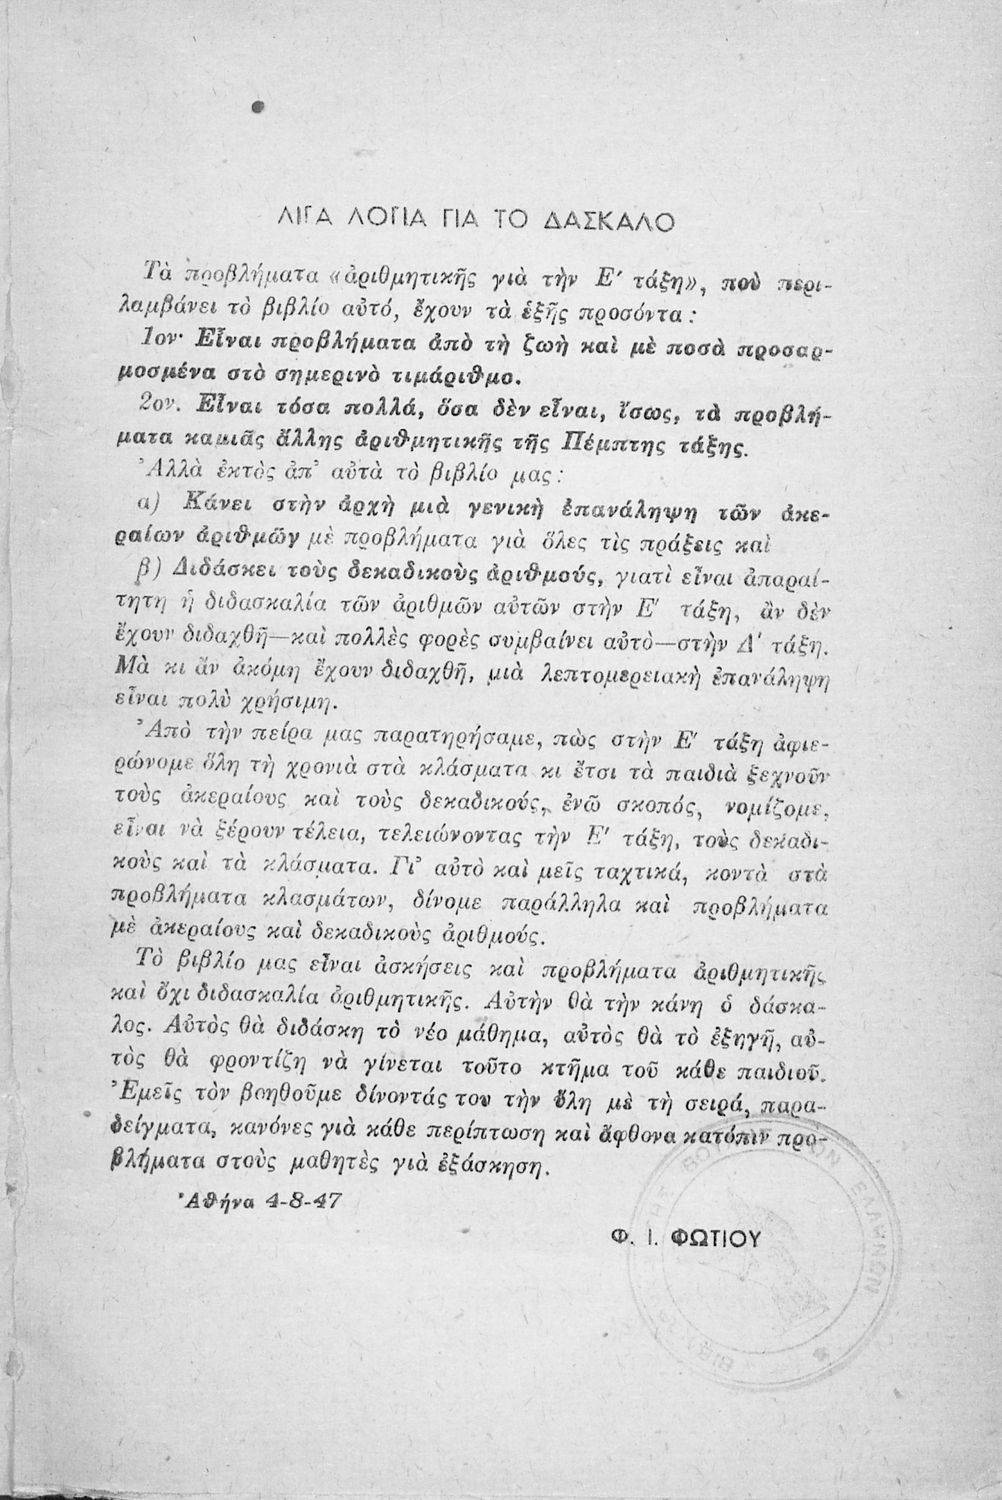 ΛΙΓΑ ΛΟΓΙΑ ΓΙΑ ΤΟ ΔΑΣΚΑΛΟ
Τὰ προβλήματα «ἀριθμητικῆς γιὰ τὴν Ε′ τάξη», ποὺ περι-
λαμβάνει τὸ βιβλίο αὐτό, ἔχουν τὰ ἑξῆς προσόντα:
1ον· Εἶναι προβλήματα ἀπὸ τὴ ζωὴ καὶ μὲ ποσὰ προσαρ-
μοσμένα στὸ σημερινὸ τιμάριθμο.
2ον. Εἶναι τόσα πολλά, ὅσα δὲν εἶναι, ἴσως, τὰ προβλή-
ματα καμιᾶς ἄλλης ἀριθμητικῆς τῆς Πέμπτης τάξης.
Ἀλλὰ ἐκτὸς ἀπ' αὐτὰ τὸ βιβλίο μας:
α) Κάνει στὴν ἀρχὴ μιὰ γενικὴ ἐπανάληψη τῶν ἀκε-
ραίων ἀριθμῶν μὲ προβλήματα γιὰ ὅλες τὶς πράξεις καὶ
β) Διδάσκει τοὺς δεκαδικοὺς ἀριθμούς, γιατὶ εἶναι ἀπαραί-
τητη ἡ διδασκαλία τῶν ἀριθμῶν αὐτῶν στὴν Ε′ τάξη, ἂν δὲν
ἔχουν διδαχθῆ—καὶ πολλὲς φορὲς συμβαίνει αὐτὸ—στὴν Δ′ τάξη.
Μὰ κι ἂν ἀκόμη ἔχουν διδαχθῆ, μιὰ λεπτομερειακὴ ἐπανάληψη
εἶναι πολὺ χρήσιμη.
Ἀπὸ τὴν πείρα μας παρατηρήσαμε, πὼς στὴν Ε′ τάξη ἀφιε-
ρώνομε ὅλη τὴ χρονιὰ στὰ κλάσματα κι ἔτσι τὰ παιδιὰ ξεχνοῦν
τοὺς ἀκεραίους καὶ τοὺς δεκαδικούς, ἐνῶ σκοπός, νομίζομε,
εἶναι νὰ ξέρουν τέλεια, τελειώνοντας τὴν Ε′ τάξη, τοὺς δεκαδι-
κοὺς καὶ τὰ κλάσματα. Γι' αὐτὸ καὶ μεῖς ταχτικά, κοντὰ στὰ
προβλήματα κλασμάτων, δίνομε παράλληλα καὶ προβλήματα
μὲ ἀκεραίους καὶ δεκαδικοὺς ἀριθμούς.
Τὸ βιβλίο μας εἶναι ἀσκήσεις καὶ προβλήματα ἀριθμητικῆς
καὶ ὄχι διδασκαλία ἀριθμητικῆς. Αὐτὴν θὰ τὴν κάνη ὁ δάσκα-
λος. Αὐτὸς θὰ διδάσκη τὸ νέο μάθημα, αὐτὸς θὰ τὸ ἐξηγῆ, αὐ-
τὸς θὰ φροντίζη νὰ γίνεται τοῦτο κτῆμα τοῦ κάθε παιδιοῦ.
Ἐμεῖς τὸν βοηθοῦμε δίνοντάς του τὴν ὕλη μὲ τὴ σειρά, παρα-
δείγματα, κανόνες γιὰ κάθε περίπτωση καὶ ἄφθονα κατόπιν προ-
βλήματα στοὺς μαθητὲς γιὰ ἐξάσκηση.
Ἀθήνα 4-8-47
Φ. Ι. ΦΩΤΙΟΥ
ΕΛΛΗΝΩΝ